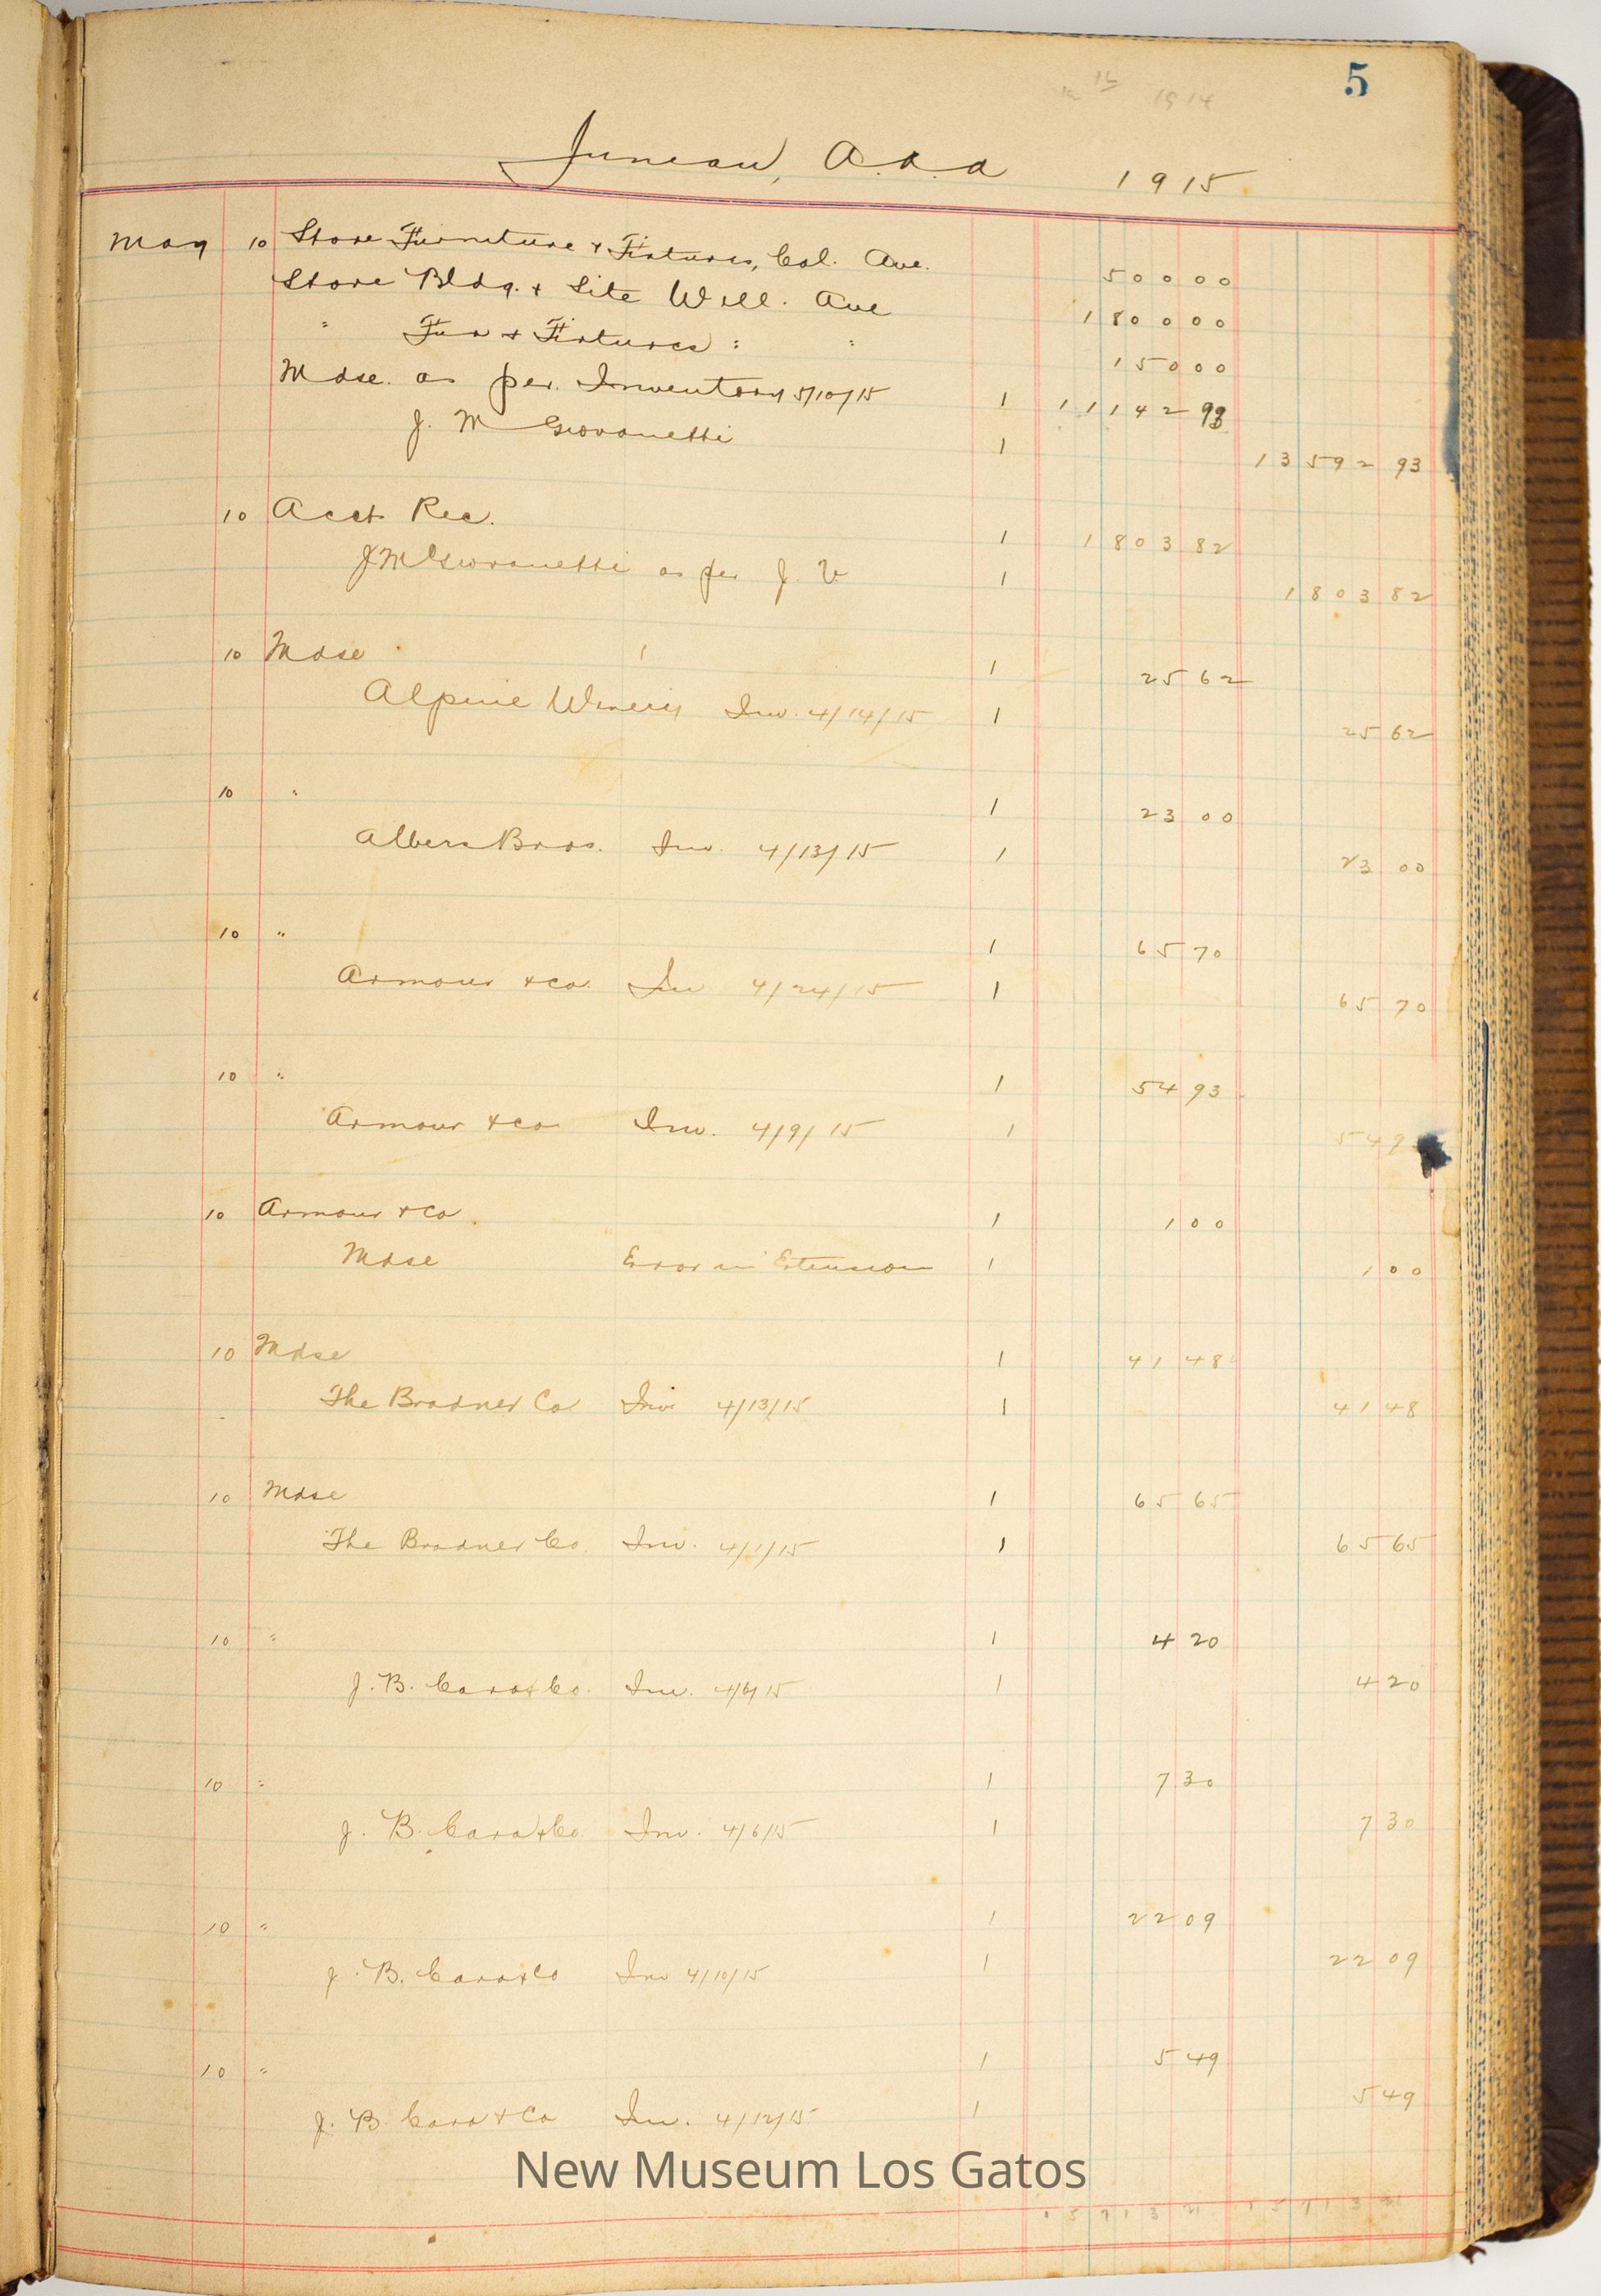 5
1914
Juneau, A.
1915
May 10 Store Furniture & Fixtures, Cal. Ave. 500 00
Store Bldg. & Site Will. Ave 1800 00
" Fur & Fixtures " " 150 00
Mdse. as per. Inventory 5/10/15 1 11142 93
J. M Giovanetti 1 13592 93
10 Acct Rec. 1 1803 82
J M Giovanetti as per J. V 1 1803 82
10 Mdse 1 25 62
Alpine Winery Inv. 4/14/15 1 25 62
10 " 1 23 00
Albers Bros. Inv. 4/13/15 1 23 00
10 " 1 65 70
Armour & Co. Inv 4/24/15 1 65 70
10 " 1 54 93
Armour & Co Inv. 4/9/15 1 54 9
10 Armour & Co 1 1 00
Mdse Error in Extension 1 1 00
10 Mdse 1 41 48
The Bradner Co Inv 4/13/15 1 41 48
10 Mdse 1 65 65
The Bradner Co. Inv. 4/1/15 1 65 65
10 " 1 4 20
J. B. Caro & Co. Inv. 4/6/15 1 4 20
10 " 1 7 30
J. B. Caro & Co. Inv. 4/6/15 1 7 30
10 " 1 22 09
J. B. Caro & Co Inv 4/10/15 1 22 09
10 " 1 5 49
J. B. Caro & Co Inv. 4/12/15 1 5 49
New Museum Los Gatos